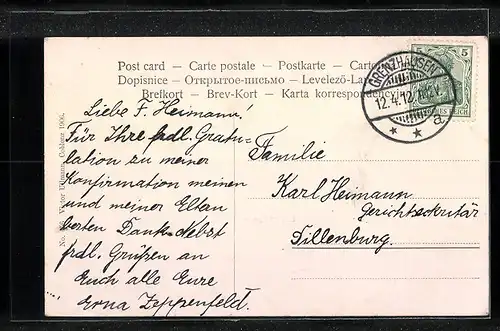 Post card — Carte postale — Postkarte — Carto
Dopisnice — Открытое-письмо — Levelező-La
Brefkort — Brev-Kort — Karta korrespondencyj
5 5
GRENZHAUSEN
12.4.12. 11-12 V.
* * a
REICH
Liebe F. Heimann!
Für Ihre frdl. Gratu=
lation zu meiner
Konfirmation meinen
und meiner Eltern
besten Dank. Nebst
frdl. Grüßen an
Euch alle Eure
Erna Zeppenfeld.
Familie
Karl Heimann
Gerichtssekretär
Dillenburg.
Coblenz 1906.